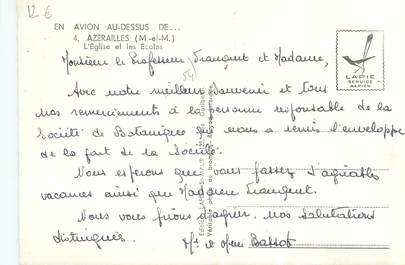 12 €
EN AVION AU-DESSUS DE...
4. AZERAILLES (M.-et-M.)
L'Église et les Écoles
LAPIE
SERVICE
AÉRIEN
54
Monsieur le Professeur et Madame,
Avec notre meilleur souvenir et tous
nos remerciements à la personne responsable de la
Société de Botanique qui nous a remis l'enveloppe
de la part de la Société.
Nous espérons que vous passez d'agréables
vacances ainsi que Madame
Nous vous prions d'agréer nos salutations
distinguées.
Mr et Mme